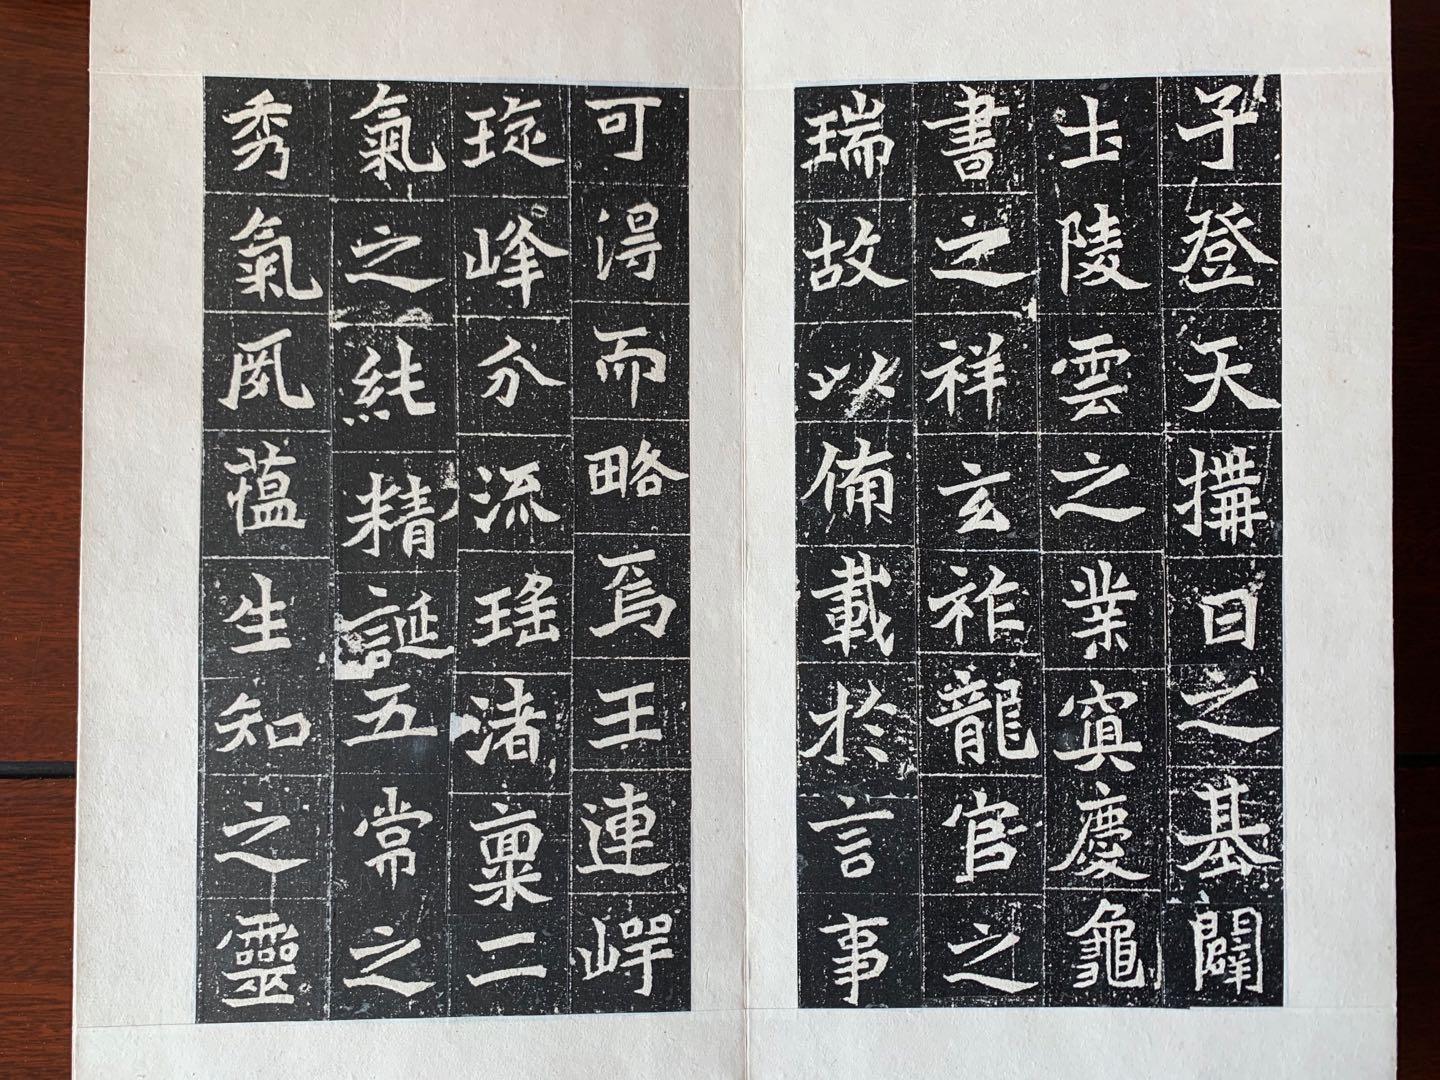 子登天搆日之基闢
士陵雲之業寘慶龜
書之祥玄祚龍官之
瑞故以備載於言事
可得而略焉王連崿
琁峰分流瑤渚稟二
氣之純精誕五常之
秀氣夙蘊生知之靈